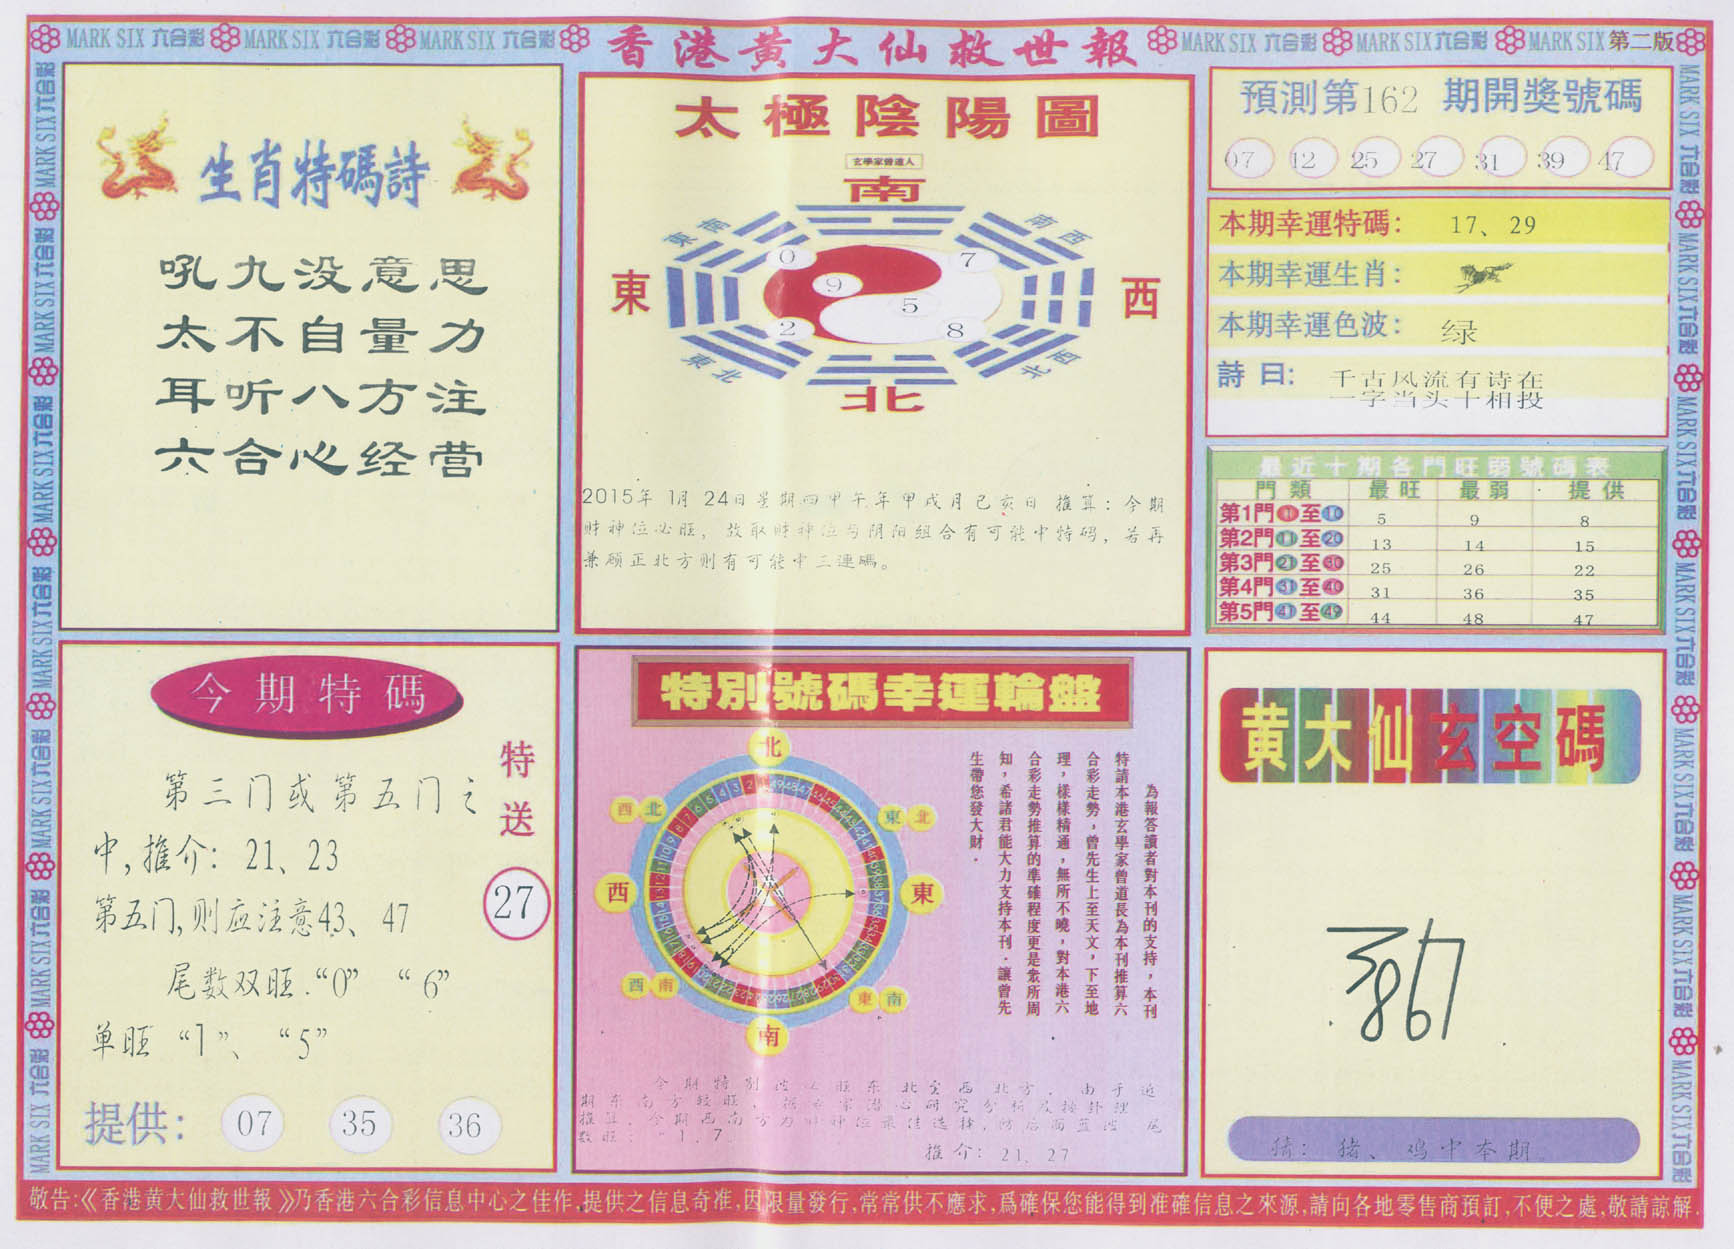 MARK SIX 六合彩 MARK SIX 六合彩 MARK SIX 六合彩
香港黄大仙救世報
MARK SIX 六合彩 MARK SIX 六合彩 MARK SIX 第二版
生肖特碼詩
吼九没意思
太不自量力
耳听八方注
六合心经营
太極陰陽圖
玄學家曾道人
南
東南
南西
東
西
0
7
9
5
2
8
東北
北西
北
2015年 1月 24日星期四甲午年甲戌月己亥日 推算:今期
财神位必旺,故取财神位与阴阳组合有可能中特码,若再
兼顾正北方则有可能中三連碼。
預測第162 期開獎號碼
07 12 25 27 31 39 47
本期幸運特碼: 17、29
本期幸運生肖:
本期幸運色波: 绿
詩曰: 千古风流有诗在
一字当头十相投
最近十期各門旺弱號碼表
門類 最旺 最弱 提供
第1門 1 至 10 5 9 8
第2門 11 至 20 13 14 15
第3門 21 至 30 25 26 22
第4門 31 至 40 31 36 35
第5門 41 至 49 44 48 47
今期特碼
第三门或第五门之
中,推介: 21、23
第五门,则应注意43、47
尾数双旺:“0” “6”
单旺 “1”、 “5”
特送
27
提供: 07 35 36
特別號碼幸運輪盤
北
西北
東北
西
東
西南
東南
南
為報答讀者對本刊的支持,本刊
特請本港玄學家曾道長為本刊推算六
合彩走勢,曾先生上至天文,下至地
理,樣樣精通,無所不曉,對本港六
合彩走勢推算的準確程度更是衆所周
知,希諸君能大力支持本刊.讓曾先
生帶您發大財.
推介: 21、27
黄大仙玄空碼
猜: 猪、鸡中本期。
敬告:《香港黄大仙救世報》乃香港六合彩信息中心之佳作,提供之信息奇准,因限量發行,常常供不應求,爲確保您能得到准確信息之來源,請向各地零售商預訂,不便之處,敬請諒解.